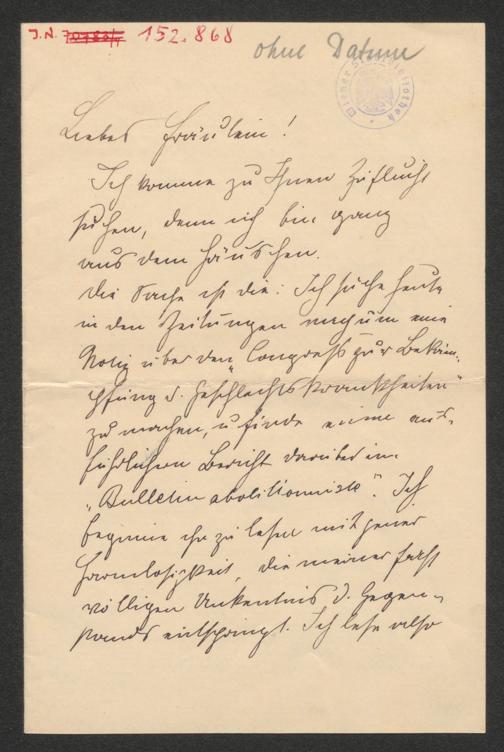 J.N. 152.868
ohne Datum
Wiener Stadtbibliothek
Liebes Fräulein!
Ich komme zu Ihnen Zuflucht
suchen, denn ich bin ganz
aus dem Häuschen.
Die Sache ist die: Ich suche heute
in den Zeitungen nach um eine
Notiz über den „Congreß zur Bekäm-
pfung d. Geschlechtskrankheiten"
zu machen, u. finde einen aus-
führlichen Bericht darüber im
„Bulletin abolitionniste". Ich
beginne ihn zu lesen mit jener
Harmlosigkeit, die meiner fast
völligen Unkentnis d. Gegen-
stands entspringt. Ich lese also